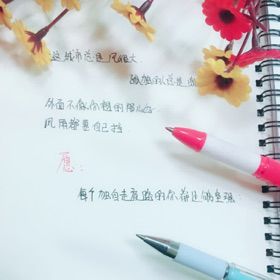 这城市总是风很大
孤独的人总是晚
外面不像你想的那么好
风雨都要自己挡
愿:
每个独自走夜路的你都足够坚强